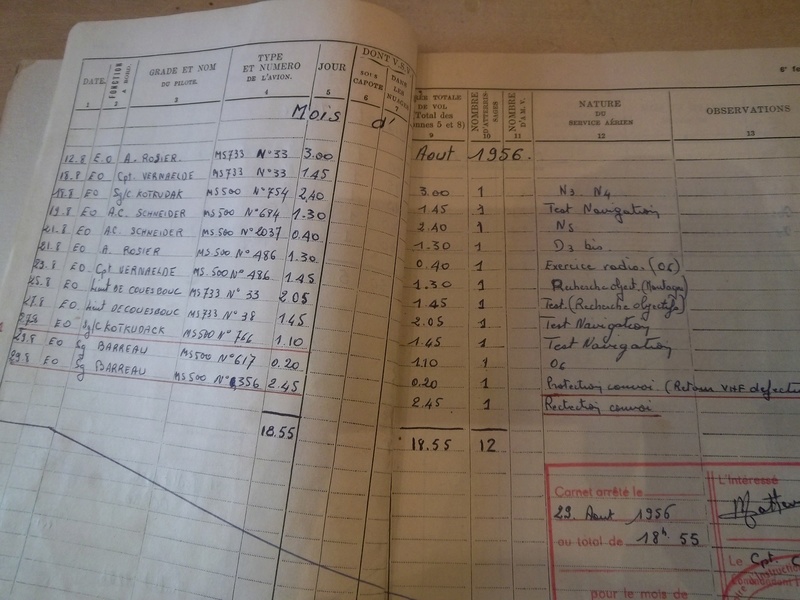 DATE FONCTION A BORD. GRADE ET NOM DU PILOTE. TYPE ET NUMERO DE L'AVION. JOUR DONT V.S.V. SOUS CAPOTE DANS LES NUAGES TOTALE DE VOL (Total des 5 et 8) NOMBRE D'ATTERRISSAGES NOMBRE D'A.M.V. NATURE DU SERVICE AÉRIEN OBSERVATIONS
1 2 3 4 5 6 7 9 10 11 12 13
MOIS d' Aout 1956.
12.8 E.O A. ROSIER. MS733 N°33 3.00 3.00 1 N3. N4
18.8 EO Cpt. VERNAELDE MS733 N°33 1.45 1.45 1 Test Navigation
18.8 EO Sg/c KOTRUDAK MS500 N°754 2.40 2.40 1 N5
19.8 EO A.C. SCHNEIDER MS500 N°694 1.30 1.30 1 D3 bis.
21.8 EO AC. SCHNEIDER MS500 N°2037 0.40 0.40 1 Exercice radio. (06)
21.8 EO A. ROSIER MS500 N°486 1.30 1.30 1 Recherche object. (Montagne)
EO Cpt VERNAELDE MS.500 N°486 1.45 1.45 1 Test. (Recherche objectifs)
EO Lieut DE COUESBOUC MS733 N°33 2.05 2.05 1 Test Navigation
27.8 EO Lieut DECOUESBOUC MS733 N°38 1.45 1.45 1 Test Navigation
EO Sg/c KOTRUDACK MS500 N°766 1.10 1.10 1 06
29.8 EO Sg BARREAU MS500 N°617 0.20 0.20 1 Protection convoi (Retour VHF
29.8 EO Sg BARREAU MS500 N° 2.45 2.45 1 convoi
18.55 18.55 12
Carnet arrêté le L'intéressé
29. Aout 1956
au total de 18h 55
Le Cpt.
pour le mois de